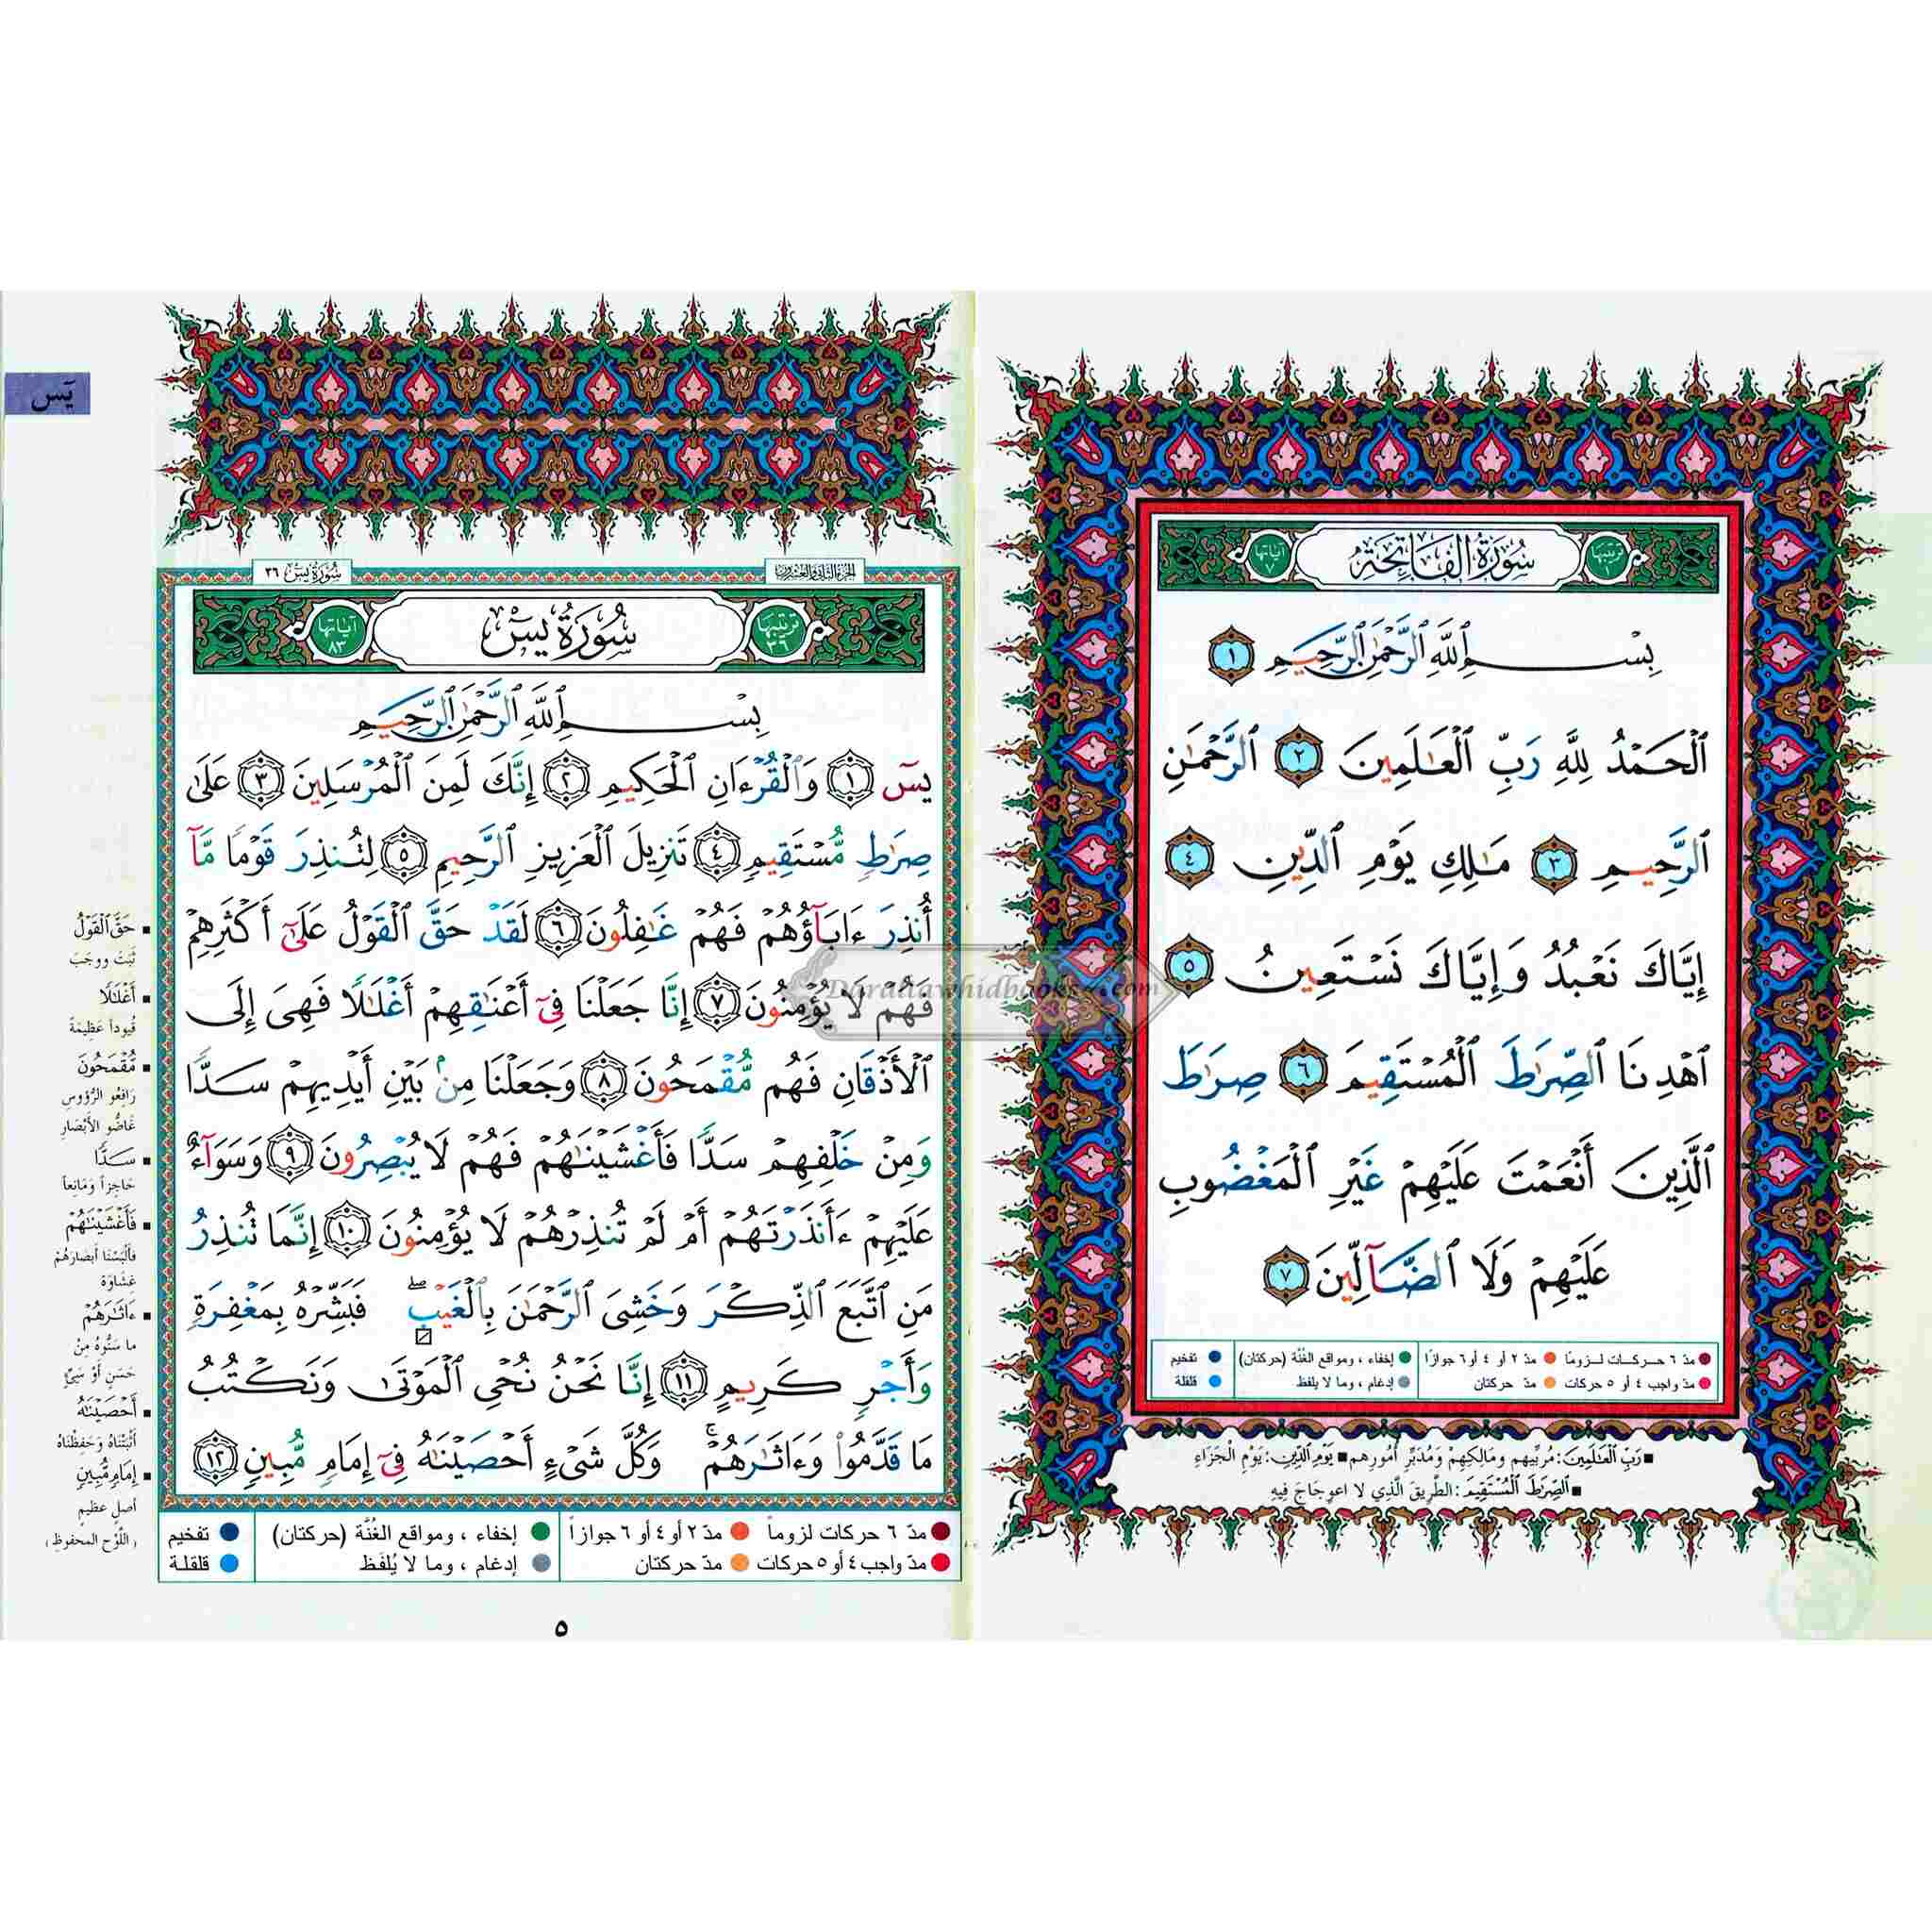 سُورَةُ الفَاتِحَةِ
ترتيبها ١
آياتها ٧
بِسْمِ ٱللَّهِ ٱلرَّحْمَٰنِ ٱلرَّحِيمِ ١
ٱلْحَمْدُ لِلَّهِ رَبِّ ٱلْعَٰلَمِينَ ٢ ٱلرَّحْمَٰنِ
ٱلرَّحِيمِ ٣ مَٰلِكِ يَوْمِ ٱلدِّينِ ٤
إِيَّاكَ نَعْبُدُ وَإِيَّاكَ نَسْتَعِينُ ٥
ٱهْدِنَا ٱلصِّرَٰطَ ٱلْمُسْتَقِيمَ ٦ صِرَٰطَ
ٱلَّذِينَ أَنْعَمْتَ عَلَيْهِمْ غَيْرِ ٱلْمَغْضُوبِ
عَلَيْهِمْ وَلَا ٱلضَّآلِّينَ ٧
مدّ ٦ حركات لزوماً مدّ ٢ أو ٤ أو ٦ جوازاً إخفاء ، ومواقع الغُنَّة (حركتان) تفخيم
مدّ واجب ٤ أو ٥ حركات مدّ حركتان إدغام ، وما لا يُلفظ قلقلة
رَبِّ ٱلْعَٰلَمِينَ: مُرَبِّيهِم وَمَالِكِهِمْ وَمُدَبِّرِ أُمُورِهِم يَوْمِ الدِّينِ: يَوْمِ الْجَزَاءِ
الصِّرَٰطَ الْمُسْتَقِيمَ: الطَّرِيقَ الَّذِي لا اعوِجَاجَ فِيهِ
يسٓ
سُورَةُ يسٓ ٣٦
الجزء الثاني والعشرون
سُورَةُ يسٓ
ترتيبها ٣٦
آياتها ٨٣
بِسْمِ ٱللَّهِ ٱلرَّحْمَٰنِ ٱلرَّحِيمِ
يسٓ ١ وَٱلْقُرْءَانِ ٱلْحَكِيمِ ٢ إِنَّكَ لَمِنَ ٱلْمُرْسَلِينَ ٣ عَلَىٰ
صِرَٰطٍ مُّسْتَقِيمٍ ٤ تَنزِيلَ ٱلْعَزِيزِ ٱلرَّحِيمِ ٥ لِتُنذِرَ قَوْمًا مَّآ
أُنذِرَ ءَابَآؤُهُمْ فَهُمْ غَٰفِلُونَ ٦ لَقَدْ حَقَّ ٱلْقَوْلُ عَلَىٰٓ أَكْثَرِهِمْ
فَهُمْ لَا يُؤْمِنُونَ ٧ إِنَّا جَعَلْنَا فِىٓ أَعْنَٰقِهِمْ أَغْلَٰلًا فَهِىَ إِلَى
ٱلْأَذْقَانِ فَهُم مُّقْمَحُونَ ٨ وَجَعَلْنَا مِنۢ بَيْنِ أَيْدِيهِمْ سَدًّا
وَمِنْ خَلْفِهِمْ سَدًّا فَأَغْشَيْنَٰهُمْ فَهُمْ لَا يُبْصِرُونَ ٩ وَسَوَآءٌ
عَلَيْهِمْ ءَأَنذَرْتَهُمْ أَمْ لَمْ تُنذِرْهُمْ لَا يُؤْمِنُونَ ١٠ إِنَّمَا تُنذِرُ
مَنِ ٱتَّبَعَ ٱلذِّكْرَ وَخَشِىَ ٱلرَّحْمَٰنَ بِٱلْغَيْبِۖ فَبَشِّرْهُ بِمَغْفِرَةٍ
وَأَجْرٍ كَرِيمٍ ١١ إِنَّا نَحْنُ نُحْىِ ٱلْمَوْتَىٰ وَنَكْتُبُ
مَا قَدَّمُوا۟ وَءَاثَٰرَهُمْۚ وَكُلَّ شَىْءٍ أَحْصَيْنَٰهُ فِىٓ إِمَامٍ مُّبِينٍ ١٢
مدّ ٦ حركات لزوماً مدّ ٢ أو ٤ أو ٦ جوازاً إخفاء ، ومواقع الغُنَّة (حركتان) تفخيم
مدّ واجب ٤ أو ٥ حركات مدّ حركتان إدغام ، وما لا يُلفَظ قلقلة
حَقَّ ٱلْقَوْلُ
ثَبَتَ ووجَبَ
أَغْلَٰلًا
قُيُوداً عَظِيمَةً
مُّقْمَحُونَ
رَافِعُو الرُّؤُوسِ
غَاضُّو الأَبْصَارِ
سَدًّا
حَاجِزاً وَمَانِعاً
فَأَغْشَيْنَٰهُمْ
فَأَلْبَسْنَا أَبصَارَهُمْ
غِشَاوَة
ءَاثَٰرَهُمْ
ما سَنُّوهُ مِنْ
حَسَنٍ أَوْ سَيِّئٍ
أَحْصَيْنَٰهُ
أَثْبَتْنَاهُ وَحَفِظْنَاهُ
إِمَامٍ مُّبِينٍ
أصلٍ عظيمٍ
(اللَّوْحِ المحفوظِ)
٥